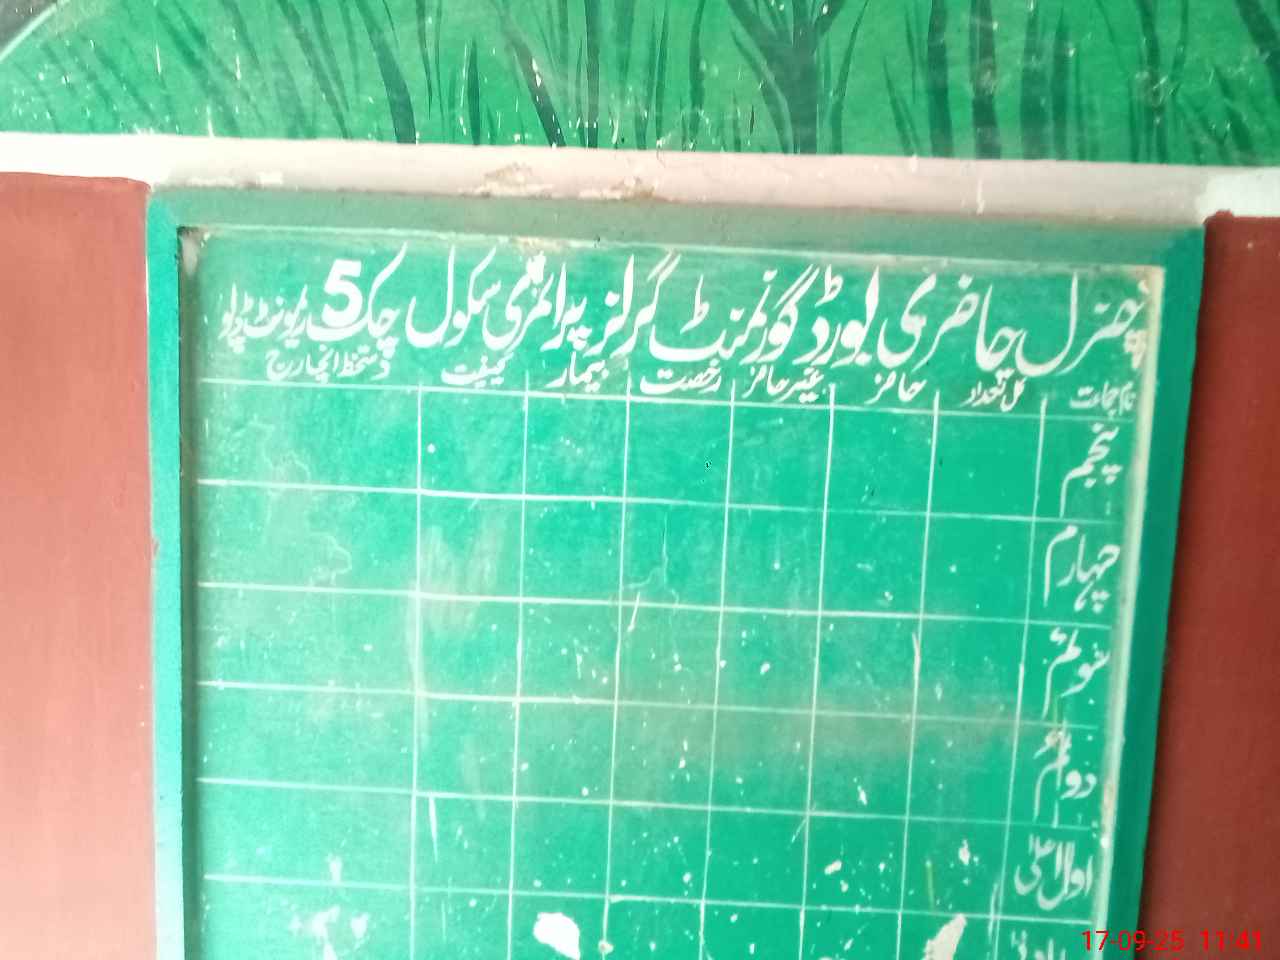 جنرل حاضری بورڈ گورنمنٹ گرلز پرائمری سکول چک 5
نام جماعت کل تعداد حاضر غیر حاضر رخصت بیمار کیفیت دستخط انچارج
پنجم
چہارم
سوئم
دوئم
اول اعلیٰ
17-09-25 11:41